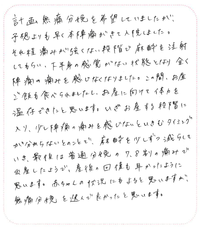 計画無痛分娩を希望していましたが、
予定よりも早く本陣痛がきて入院しました。
それ程痛みが強くない段階で麻酔を注射
してもらい、下半身の感覚がない状態になり、全く
陣痛の痛みを感じなくなりました。この間、お昼
ご飯も食べられましたし、お産に向けて体力を
温存できたと思います。いざお産する段階に
入り、少し陣痛の痛みを感じないといきむタイミング
が分からないとのことで、麻酔を少しずつ減らして
いき、最後は普通分娩の7、8割の痛みで
出産したようで、産後の回復も早かったように
思います。赤ちゃんの状況にもよると思いますが、
無痛分娩を選んで良かったと思います。